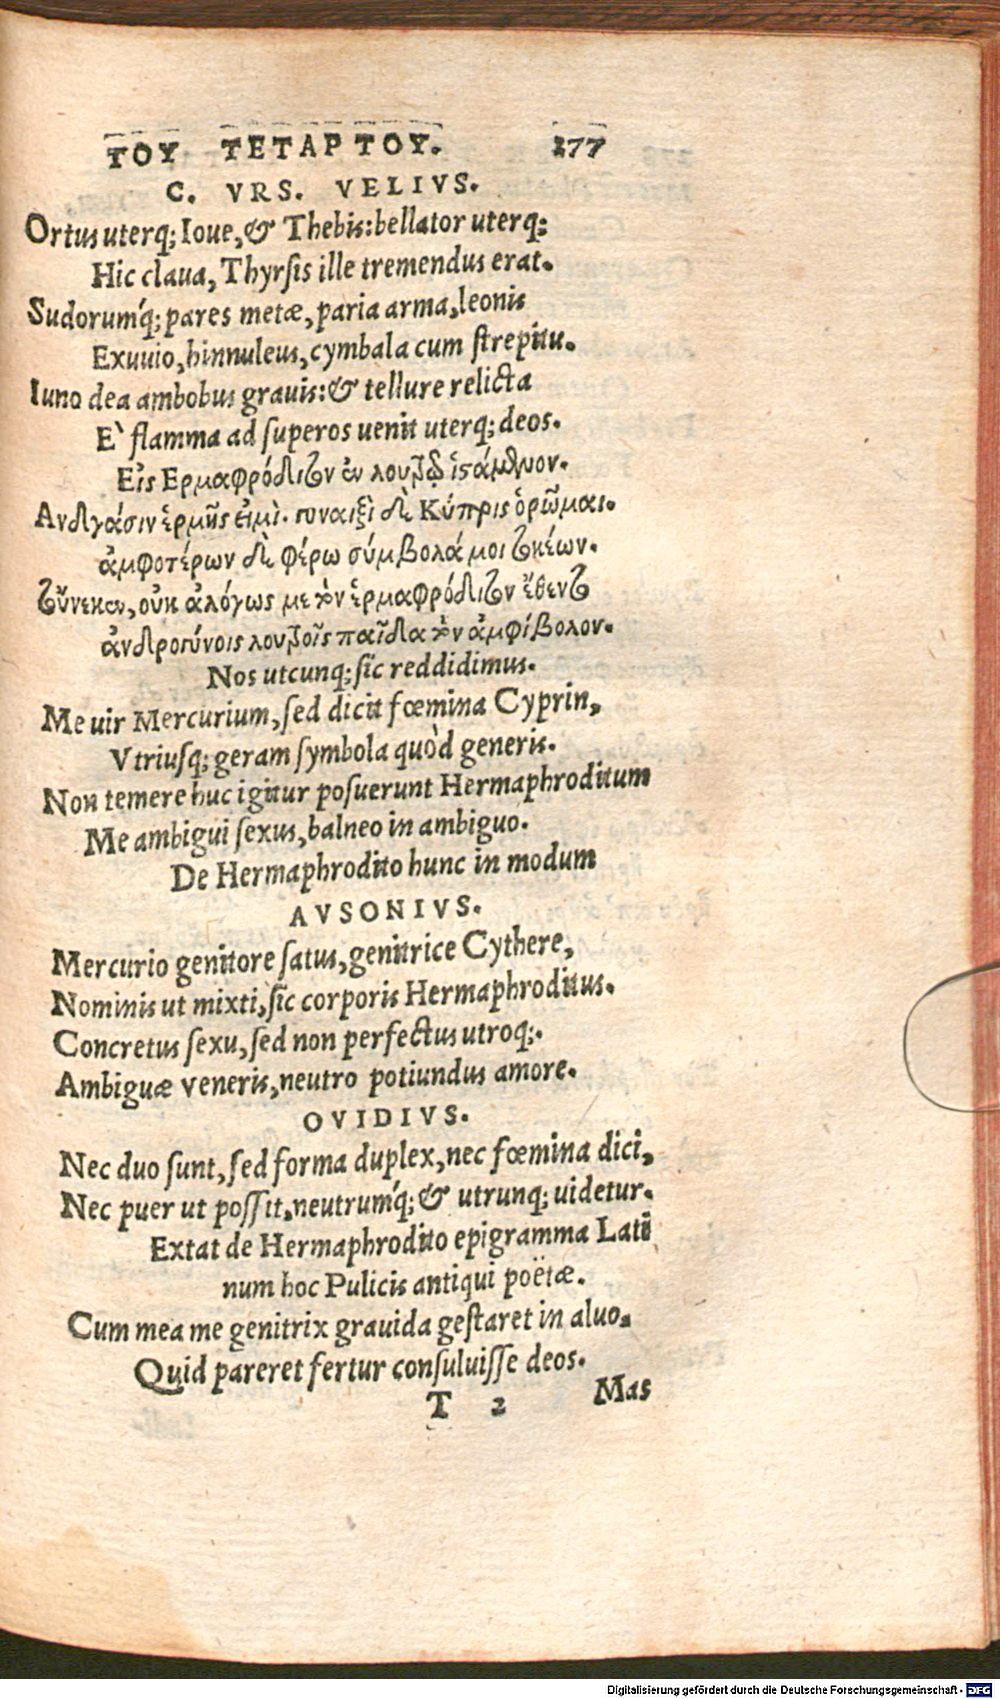 ΤΟΥ ΤΕΤΑΡΤΟΥ. 277
C. VRS. VELIVS.
Ortus uterq; Ioue, & Thebis: bellator uterq;
Hic claua, Thyrsis ille tremendus erat.
Sudorumq́; pares metæ, paria arma, leonis
Exuuio, hinnuleus, cymbala cum strepitu.
Iuno dea ambobus grauis: & tellure relicta
E` flamma ad superos uenit uterq; deos.
Εἰς Ερμαφρόδιτον ἐν λουτρῷ ἱστάμενον.
Ανδράσιν ἑρμῆς εἰμὶ. γυναιξὶ δὲ Κύπρις ὁρῶμαι.
ἀμφοτέρων δὲ φέρω σύμβολά μοι τοκέων.
τοὔνεκεν, οὐκ ἀλόγως με τὸν ἑρμαφρόδιτον ἔθεντο
ἀνδρογύνοις λουτροῖς παῖδα τὸν ἀμφίβολον.
Nos utcunq; sic reddidimus.
Me uir Mercurium, sed dicit fœmina Cyprin,
Vtriusq; geram symbola quòd generis.
Non temere huc igitur posuerunt Hermaphroditum
Me ambigui sexus, balneo in ambiguo.
De Hermaphrodito hunc in modum
AVSONIVS.
Mercurio genitore satus, genitrice Cythere,
Nominis ut mixti, sic corporis Hermaphroditus.
Concretus sexu, sed non perfectus utroq;.
Ambiguæ veneris, neutro potiundus amore.
OVIDIVS.
Nec duo sunt, sed forma duplex, nec fœmina dici,
Nec puer ut possit, neutrumq́; & utrunq; uidetur.
Extat de Hermaphrodito epigramma Lati
num hoc Pulicis antiqui poëtæ.
Cum mea me genitrix grauida gestaret in aluo,
Quid pareret fertur consuluisse deos.
T 2 Mas
Digitalisierung gefördert durch die Deutsche Forschungsgemeinschaft - DFG